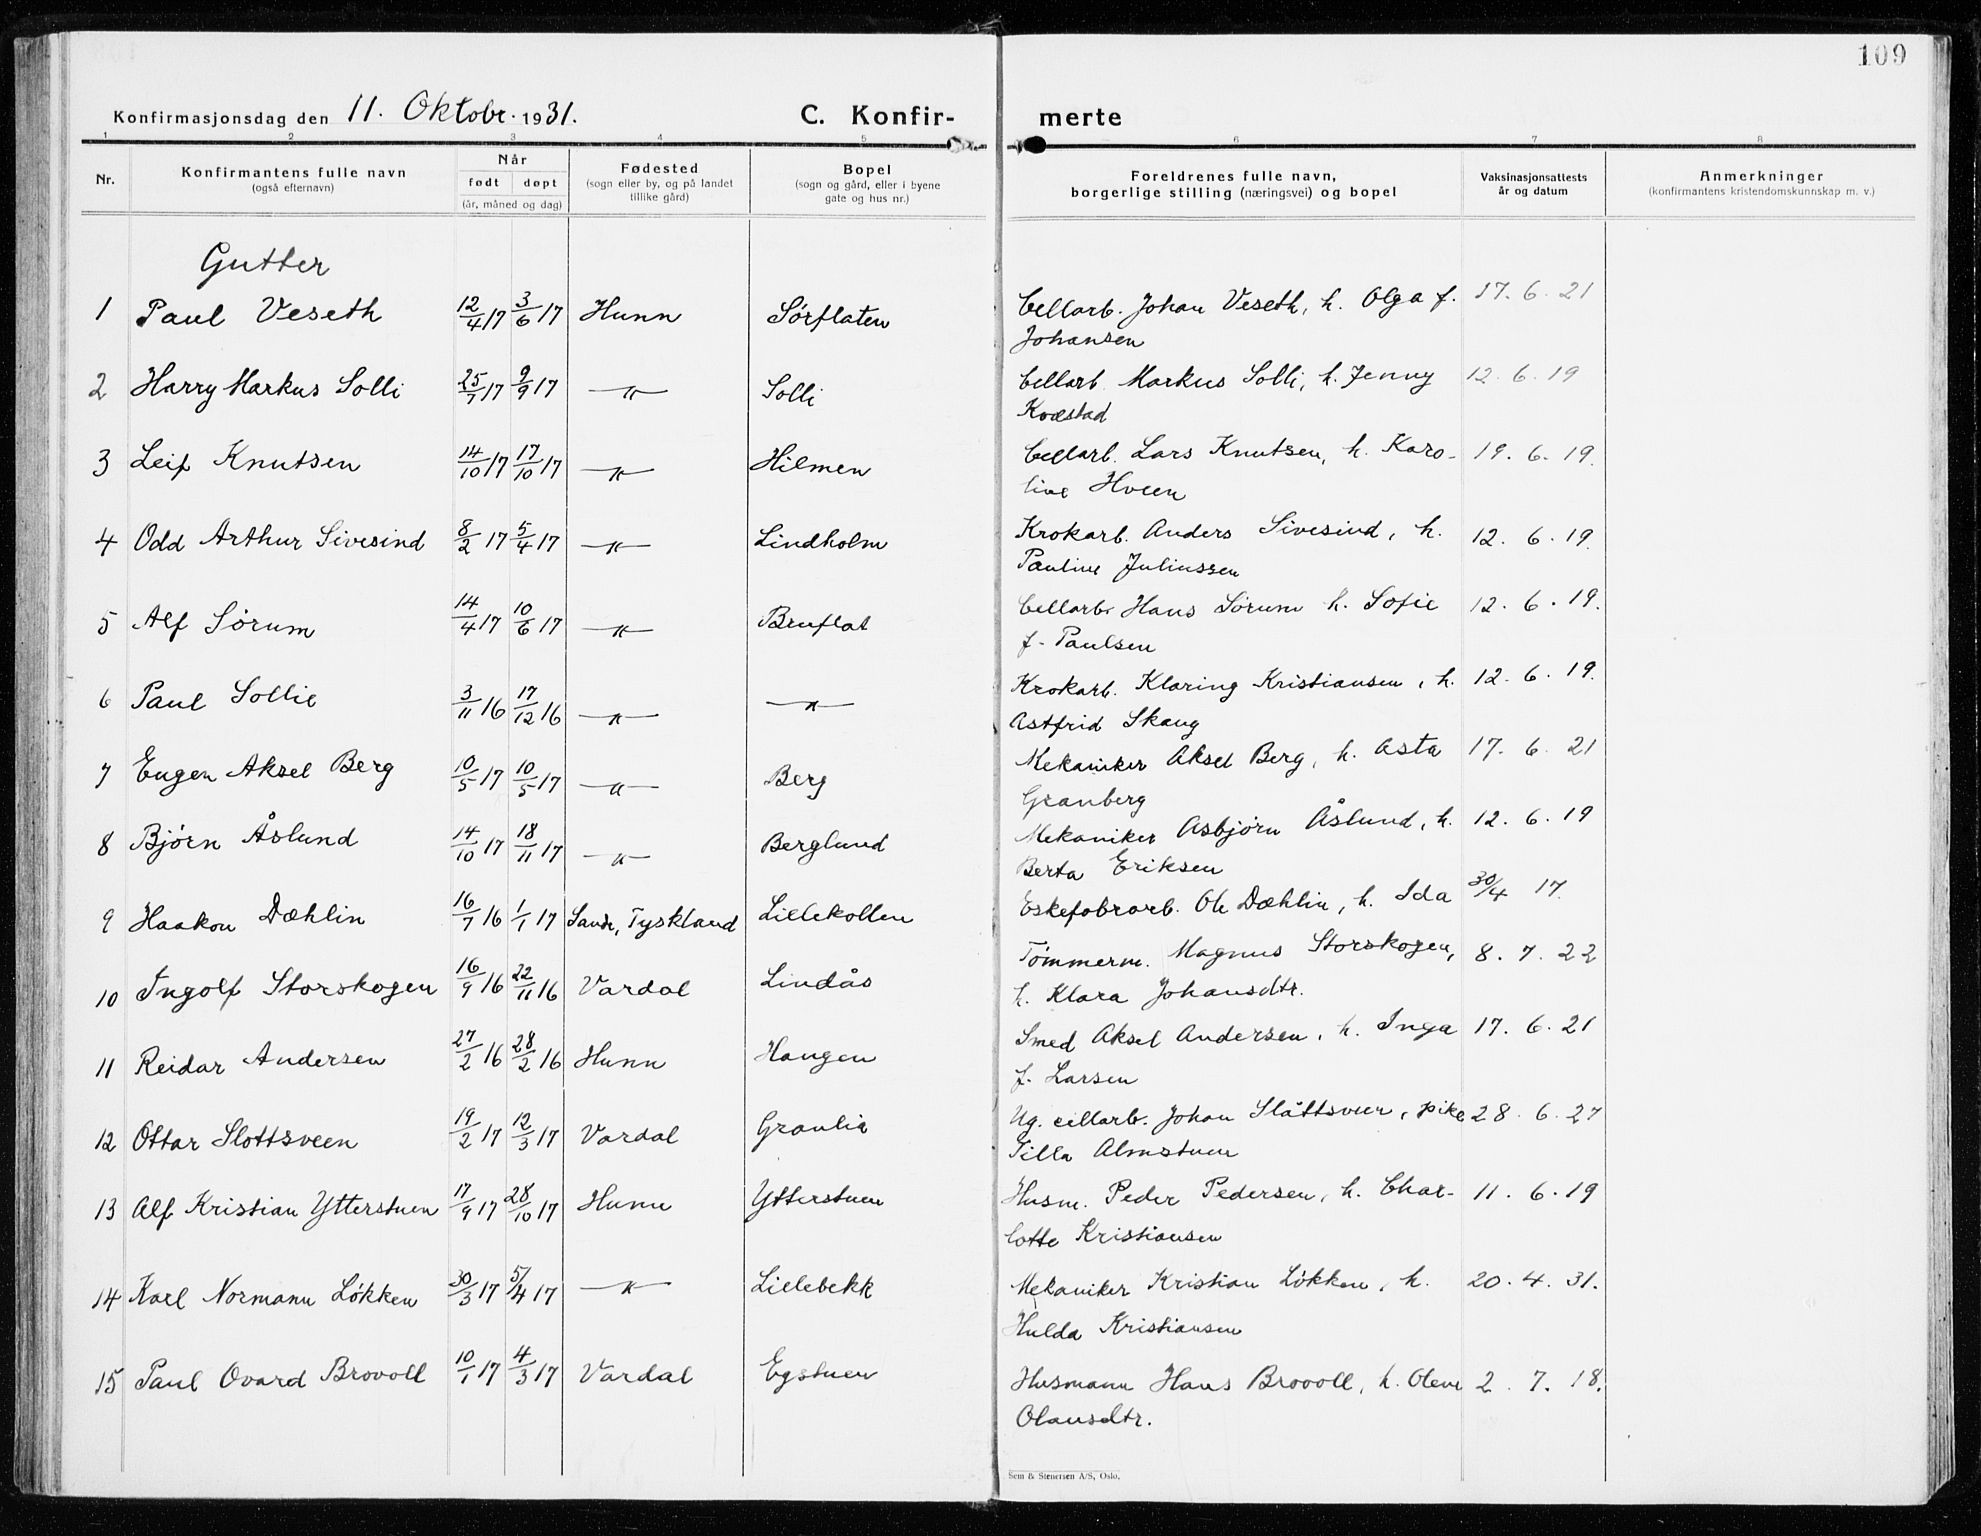 109
Konfirmasjonsdag den 11. Oktobr. 1931. C. Konfir- merte
1 2 3 4 5 6 7 8
Nr. Konfirmantens fulle navn (også efternavn) Når født døpt (år, måned og dag) Fødested (sogn eller by, og på landet tillike gård) Bopel (sogn og gård, eller i byene gate og hus nr.) Foreldrenes fulle navn, borgerlige stilling (næringsvei) og bopel Vaksinasjonsattests år og datum Anmerkninger (konfirmantens kristendomskunnskap m. v.)
Gutter
1 Paul Veseth 12/4 17 3/6 17 Hunn Sørflaten Cellarb. Johan Veseth, h. Olga f. 17. 6. 21
Johansen
2 Harry Markus Solli 25/7 17 9/9 17 —"— Solli Cellarb. Markus Solli, h. Jenny 12. 6. 19
Kvestad
3 Leif Knutsen 14/10 17 17/10 17 —"— Hilmen Cellarb. Lars Knutsen, h. Karo- 19. 6. 19.
line Hveen
4 Odd Arthur Sivesind 8/2 17 5/4 17 —"— Lindholm Krokarb. Anders Sivesind, h. 12. 6. 19.
Pauline Juliussen
5 Alf Sørum 14/4 17 10/6 17 —"— Bruflat Cellarb. Hans Sørum h. Sofie 12. 6. 19.
f. Paulsen
6 Paul Sollie 3/11 16 17/12 16 —"— —"— Krokarb. Klaring Kristiansen, h. 12. 6. 19.
Astfrid Skaug
7 Eugen Aksel Berg 10/5 17 10/5 17 —"— Berg Mekaniker Aksel Berg, h. Asta 17. 6. 21
Granberg
8 Bjørn Åslund 14/10 17 18/11 17 —"— Berglund Mekaniker Asbjørn Åslund, h. 12. 6. 19
Berta Eriksen
9 Haakon Dæhlin 16/7 16 1/1 17 Sande, Tyskland Lillekollen Eskefabrarb. Ole Dæhlin, h. Ida 30/4 17.
10 Ingolf Storskogen 16/9 16 22/11 16 Vardal Lindås Tømmerm. Magnus Storskogen, 8. 7. 22
h. Klara Johansdtr.
11 Reidar Andersen 27/2 16 28/2 16 Hunn Haugen Smed Aksel Andersen, h. Inga 17. 6. 21
f. Larsen
12 Ottar Slottsveen 19/2 17 12/3 17 Vardal Granlia Ug. cellarb. Johan Slåttsveen, pike 28. 6. 27
Tilla Almstuen
13 Alf Kristian Ytterstuen 17/9 17 28/10 17 Hunn Ytterstuen Husm. Peder Pedersen, h. Char- 11. 6. 19
lotte Kristiansen
14 Karl Normann Løkken 30/3 17 5/4 17 —"— Lillebekk Mekaniker Kristian Løkken, h. 20. 4. 31.
Hulda Kristiansen
15 Paul Ovard Brovoll 10/1 17 4/3 17 Vardal Egstuen Husmann Hans Brovoll, h. Oleve 2. 7. 18.
Olausdtr.
Sem & Stenersen A/S, Oslo.